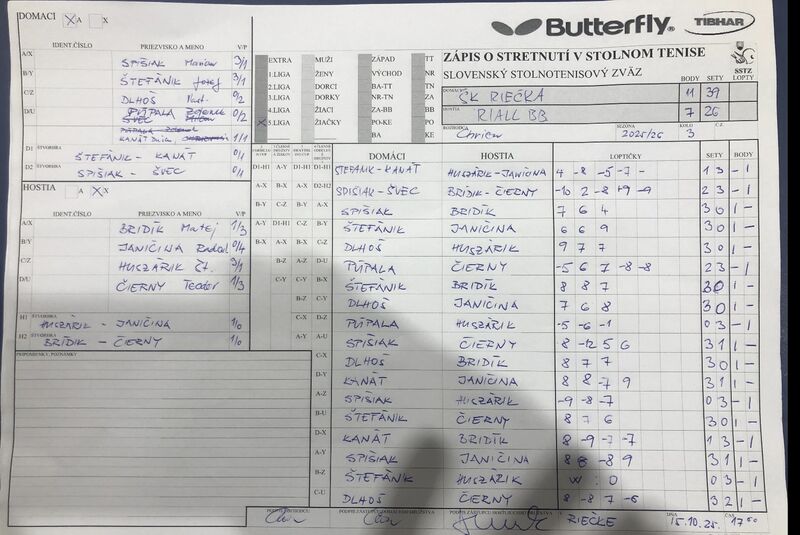 DOMACI X A X
Butterfly TIBHAR
IDENT.ČÍSLO PRIEZVISKO A MENO V/P
A/X SPIŠIAK Marian 3/1
B/Y ŠTEFÁNIK Jozef 3/1
C/Z DLHOŠ
D/U PÚPALA
KANÁT 1/1
D1 ŠTVORHRA ŠTEFÁNIK - KANÁT 0/1
D2 SPIŠIAK - ŠVEC 0/1
HOSTIA A X X
IDENT.ČÍSLO PRIEZVISKO A MENO V/P
A/X BRIDÍK Matej 1/3
B/Y JANIČINA 0/4
C/Z HUSZÁRIK ŠT. 3/1
D/U ČIERNY Teodor 1/3
H1 ŠTVORHRA HUSZÁRIK - JANIČINA 1/0
H2 ŠTVORHRA BRÍDIK - ČIERNY 1/0
PRIPOMIENKY, POZNÁMKY
EXTRA MUŽI ZÁPAD TT
1.LIGA ŽENY VÝCHOD NR
2.LIGA DORCI BA-TT TN
3.LIGA DORKY NR-TN ZA
4.LIGA ŽIACI ZA-BB BB
X 5.LIGA ŽIAČKY PO-KE PO
BA KE
ZÁPIS O STRETNUTÍ V STOLNOM TENISE
SLOVENSKÝ STOLNOTENISOVÝ ZVÄZ SSTZ
BODY SETY LOPTY
DOMÁCI ŠK RIEČKA 11 39
HOSTIA RIALL BB 7 26
ROZHODCA SEZÓNA 2025/26 KOLO 3 Č.Z.
DOMÁCI HOSTIA LOPTIČKY SETY BODY
D1-H1 A-Y D1-H1 D1-H1 ŠTEFÁNIK - KANÁT HUSZÁRIK-JANIČINA 4 -8 -5 -7 - 1 3 - 1
A-X B-X A-X D2-H2 SPIŠIAK - ŠVEC BRÍDIK - ČIERNY -10 2 -8 +9 -9 2 3 - 1
B-Y C-Z B-Y A-X SPIŠIAK BRIDÍK 7 6 4 3 0 1 -
A-Y D1-H1 C-Z B-Y ŠTEFÁNIK JANIČINA 6 6 9 3 0 1 -
B-X A-X B-X C-Z DLHOŠ HUSZÁRIK 9 7 7 3 0 1 -
B-Z A-Z D-U PÚPALA ČIERNY -5 6 7 -8 -8 2 3 - 1
C-Y C-Y B-X ŠTEFÁNIK BRIDÍK 8 8 7 3 0 1 -
B-Z C-Y DLHOŠ JANIČINA 7 6 8 3 0 1 -
C-X D-Z PÚPALA HUSZÁRIK -5 -6 -1 0 3 - 1
A-Y A-U SPIŠIAK ČIERNY 8 -12 5 6 3 1 1 -
C-X DLHOŠ BRIDÍK 8 7 7 3 0 1 -
D-Y KANÁT JANIČINA 8 8 -7 9 3 1 1 -
A-Z SPIŠIAK HUSZÁRIK -9 -8 -7 0 3 - 1
B-U ŠTEFÁNIK ČIERNY 8 7 6 3 0 1 -
D-X KANÁT BRIDÍK 8 -9 -7 -7 1 3 - 1
A-Y SPIŠIAK JANIČINA 8 8 -8 9 3 1 1 -
B-Z ŠTEFÁNIK HUSZÁRIK W : O 0 3 - 1
C-U DLHOŠ ČIERNY 8 -8 7 -6 3 2 1 -
RIEČKE DŇA 15.10.25. ČAS 17⁰⁰